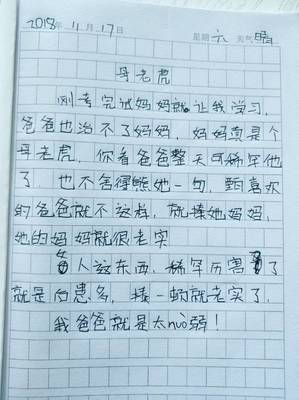 2018年11月17日 星期六 天气晴
母老虎
刚考完试妈妈就让我学习,
爸爸也治不了妈妈,妈妈真是个
母老虎,你看爸爸整天可稀罕他
了,也不舍得熊她一句,郭喜欢
的爸爸就不这样,就揍她妈妈,
她的妈妈就很老实
人这东西,稀罕厉害了
就是后患多,揍一的就老实了,
我爸爸就是太nuò弱!